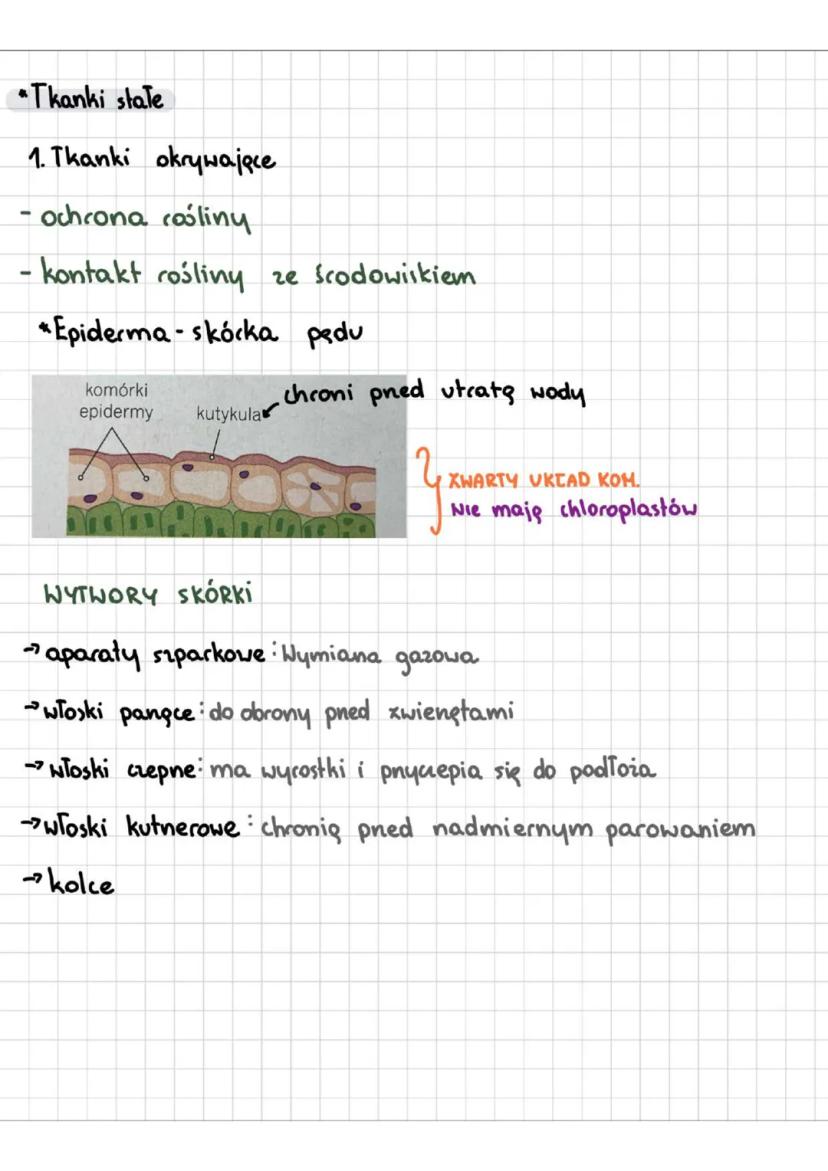 *Tkanki stałe
1. Tkanki okrywające
- ochrona rośliny
- kontakt rośliny ze środowiskiem
*Epiderma - skórka pędu
komórki epidermy
kutykula
chroni przed utratą wody
ZWARTY UKŁAD KOM.
Nie mają chloroplastów
WYTWORY SKÓRKI
→ aparaty szparkowe: Wymiana gazowa
→ włoski parzące: do obrony przed zwierzętami
→ włoski czepne: ma wyrostki i przyczepia się do podłoża
→ włoski kutnerowe: chronią przed nadmiernym parowaniem
→ kolce